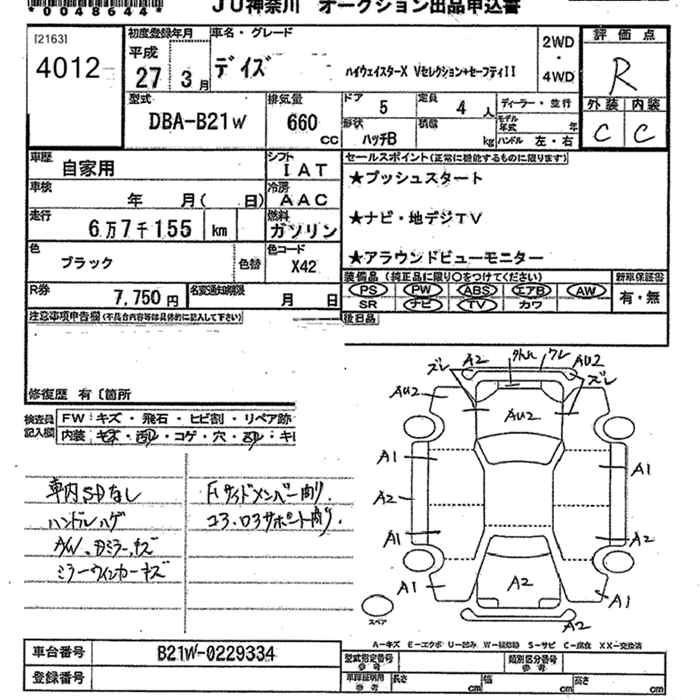 *0048644*
JU神奈川 オークション出品申込書
[2163]
4012
初度登録年月
平成
27 3月
車名・グレード
デイズ ハイウェイスターX Vセレクション+セーフティII
2WD
・
4WD
評価点
R
外装 内装
C C
型式
DBA-B21W
排気量
660 cc
ドア 5
定員 4 人
ディーラー・並行
形状 ハッチB
積載 kg
モデル年式 年
ハンドル 左・右
車歴 自家用
シフト IAT
車検 年 月( 日)
冷房 AAC
走行 6万7千155 km
燃料 ガソリン
色 ブラック 色替
色コード X42
R券 7,750円
名変通知期限 月 日
セールスポイント(正常に機能するものに限ります)
★プッシュスタート
★ナビ・地デジTV
★アラウンドビューモニター
装備品(純正品に限り○をつけてください)
新車保証書
PS PW ABS エアB AW
SR ナビ TV カワ
有・無
注意事項申告欄(不具合内容等は具体的に記入して下さい)
後日品
修復歴 有〔箇所
検査員記入欄
FW:キズ・飛石・ヒビ割・リペア跡
内装:キズ・汚れ・コゲ・穴・
車内SDなし
ハンドルハゲ
ミラーウィンカーキズ
Fサイドメンバー
コアサポート
ズレ A2 ワレ AU2 ズレ
AU2 AU2
A1 A1
A2
A1 A2
A1 A2 A1
A2
スペア
A-キズ E-エクボ U-凹み W-補修跡 S-サビ C-腐食 XX-交換済
車台番号 B21W-0229334
登録番号
型式指定番号 参考
類別区分番号 参考
車庫証明用 参考
長さ cm 幅 cm 高さ cm